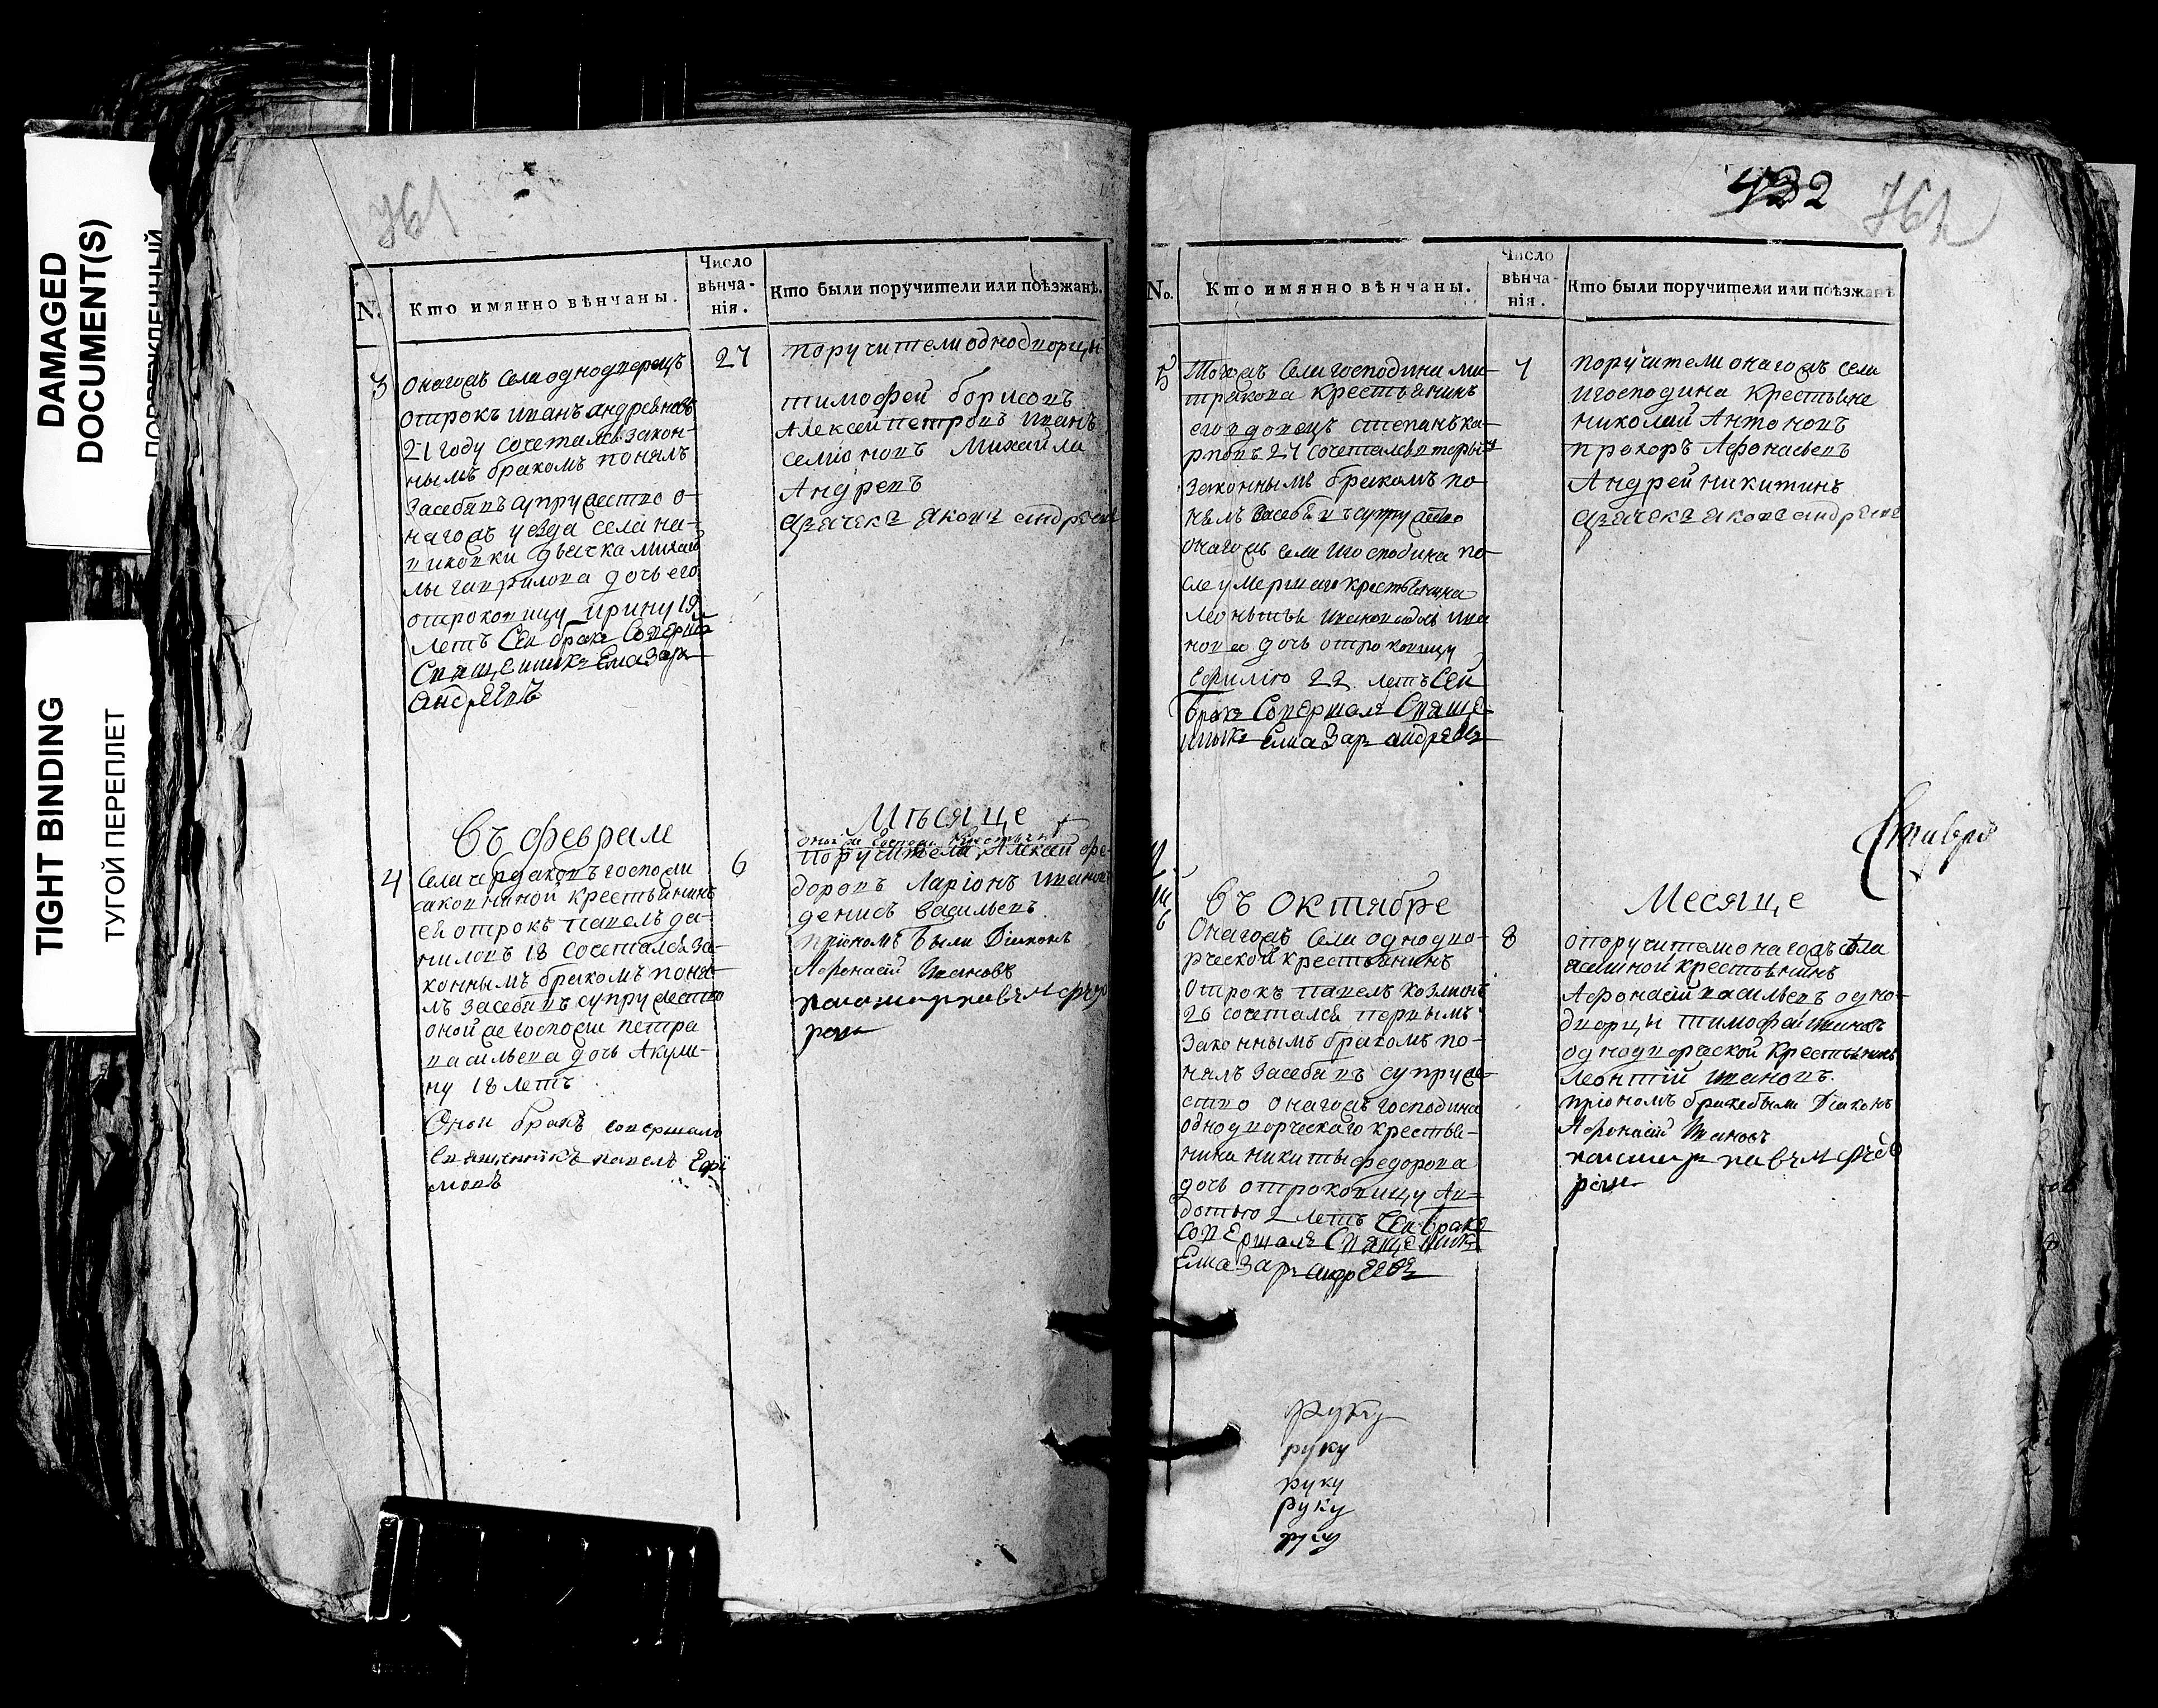 DAMAGED
DOCUMENT(S)
TIGHT BINDING
ТУГОЙ ПЕРЕПЛЕТ
761
N.
Кто имянно вѣнчаны.
Число
вѣнча-
нія.
Кто были поручители или поѣзжанѣ.
3
онагожъ села однодворецъ
отрокъ иванъ андреевъ
21 году сочетался закон-
нымъ бракомъ понялъ
засебя въ супружество о-
нагожъ уезда села на-
виковки дьячка михаи
лы гаврилова дочь его
отроковицу ирину 19
летъ Сей бракъ Совершалъ
Священникъ Елазаръ
андреевъ
27
поручители однодворцы
тимофей борисовъ
Алексей петровъ иванъ
семіоновъ михайла
Андревъ
дьячекъ яковъ андреевъ
Въ феврале
Мѣсяце
4
села чердаковъ госпожи
крестьянинъ
ей отрокъ павелъ да-
ниловъ 18 сочетался за-
коннымъ бракомъ поня-
лъ засебя въ супружество
оной же госпожи петра
васильева дочь Акули-
ну 18 летъ
Оной бракъ совершалъ
священникъ павелъ Ефи
мовъ
6
поручители Алексей фе-
доровъ Ларіонъ ивановъ
денисъ васильевъ
пріономъ были Діаконъ
Афонасій Ивановъ
432
761
No.
Кто имянно вѣнчаны.
Число
вѣнча-
нія.
Кто были поручители или поѣзжанѣ
5
Тогожъ села господина ми-
тракова крестьянинъ
его вдовецъ степанъ ка-
рповъ 27 сочетался вторы
законнымъ бракомъ по
нялъ засебя въ супружество
онагожъ села и господина по-
сле умершаго крестьянина
дочь отроковицу
Ефилію 22 летъ Сей
бракъ Совершалъ Свяще
нникъ Елазаръ андреевъ
7
поручители онагожъ села
игосподина крестьяне
николай Антоновъ
прохоръ Афонасьевъ
Андрей никитинъ
дьячекъ яковъ андреевъ
Въ Октябре
Месяце
6
Онагожъ села однодво-
рческой крестьянинъ
отрокъ павелъ козминъ
26 сочетался первымъ
законнымъ бракомъ по-
нялъ засебя въ супруже-
ство онагожъ господина
однодворческаго крестья-
нина никиты федорова
дочь отроковицу Ав-
дотью 2 летъ Сей бракъ
Совершалъ Священникъ
Елазаръ андреевъ
8
опоручители онагожъ села
крестьянинъ
Афонасій васильевъ одно-
дворцы тимофей ивановъ
однодворческой крестьянинъ
Леонтій ивановъ.
пріономъ браке были Діаконъ
Афонасій Ивановъ
руку
руку
руку
руку
руку